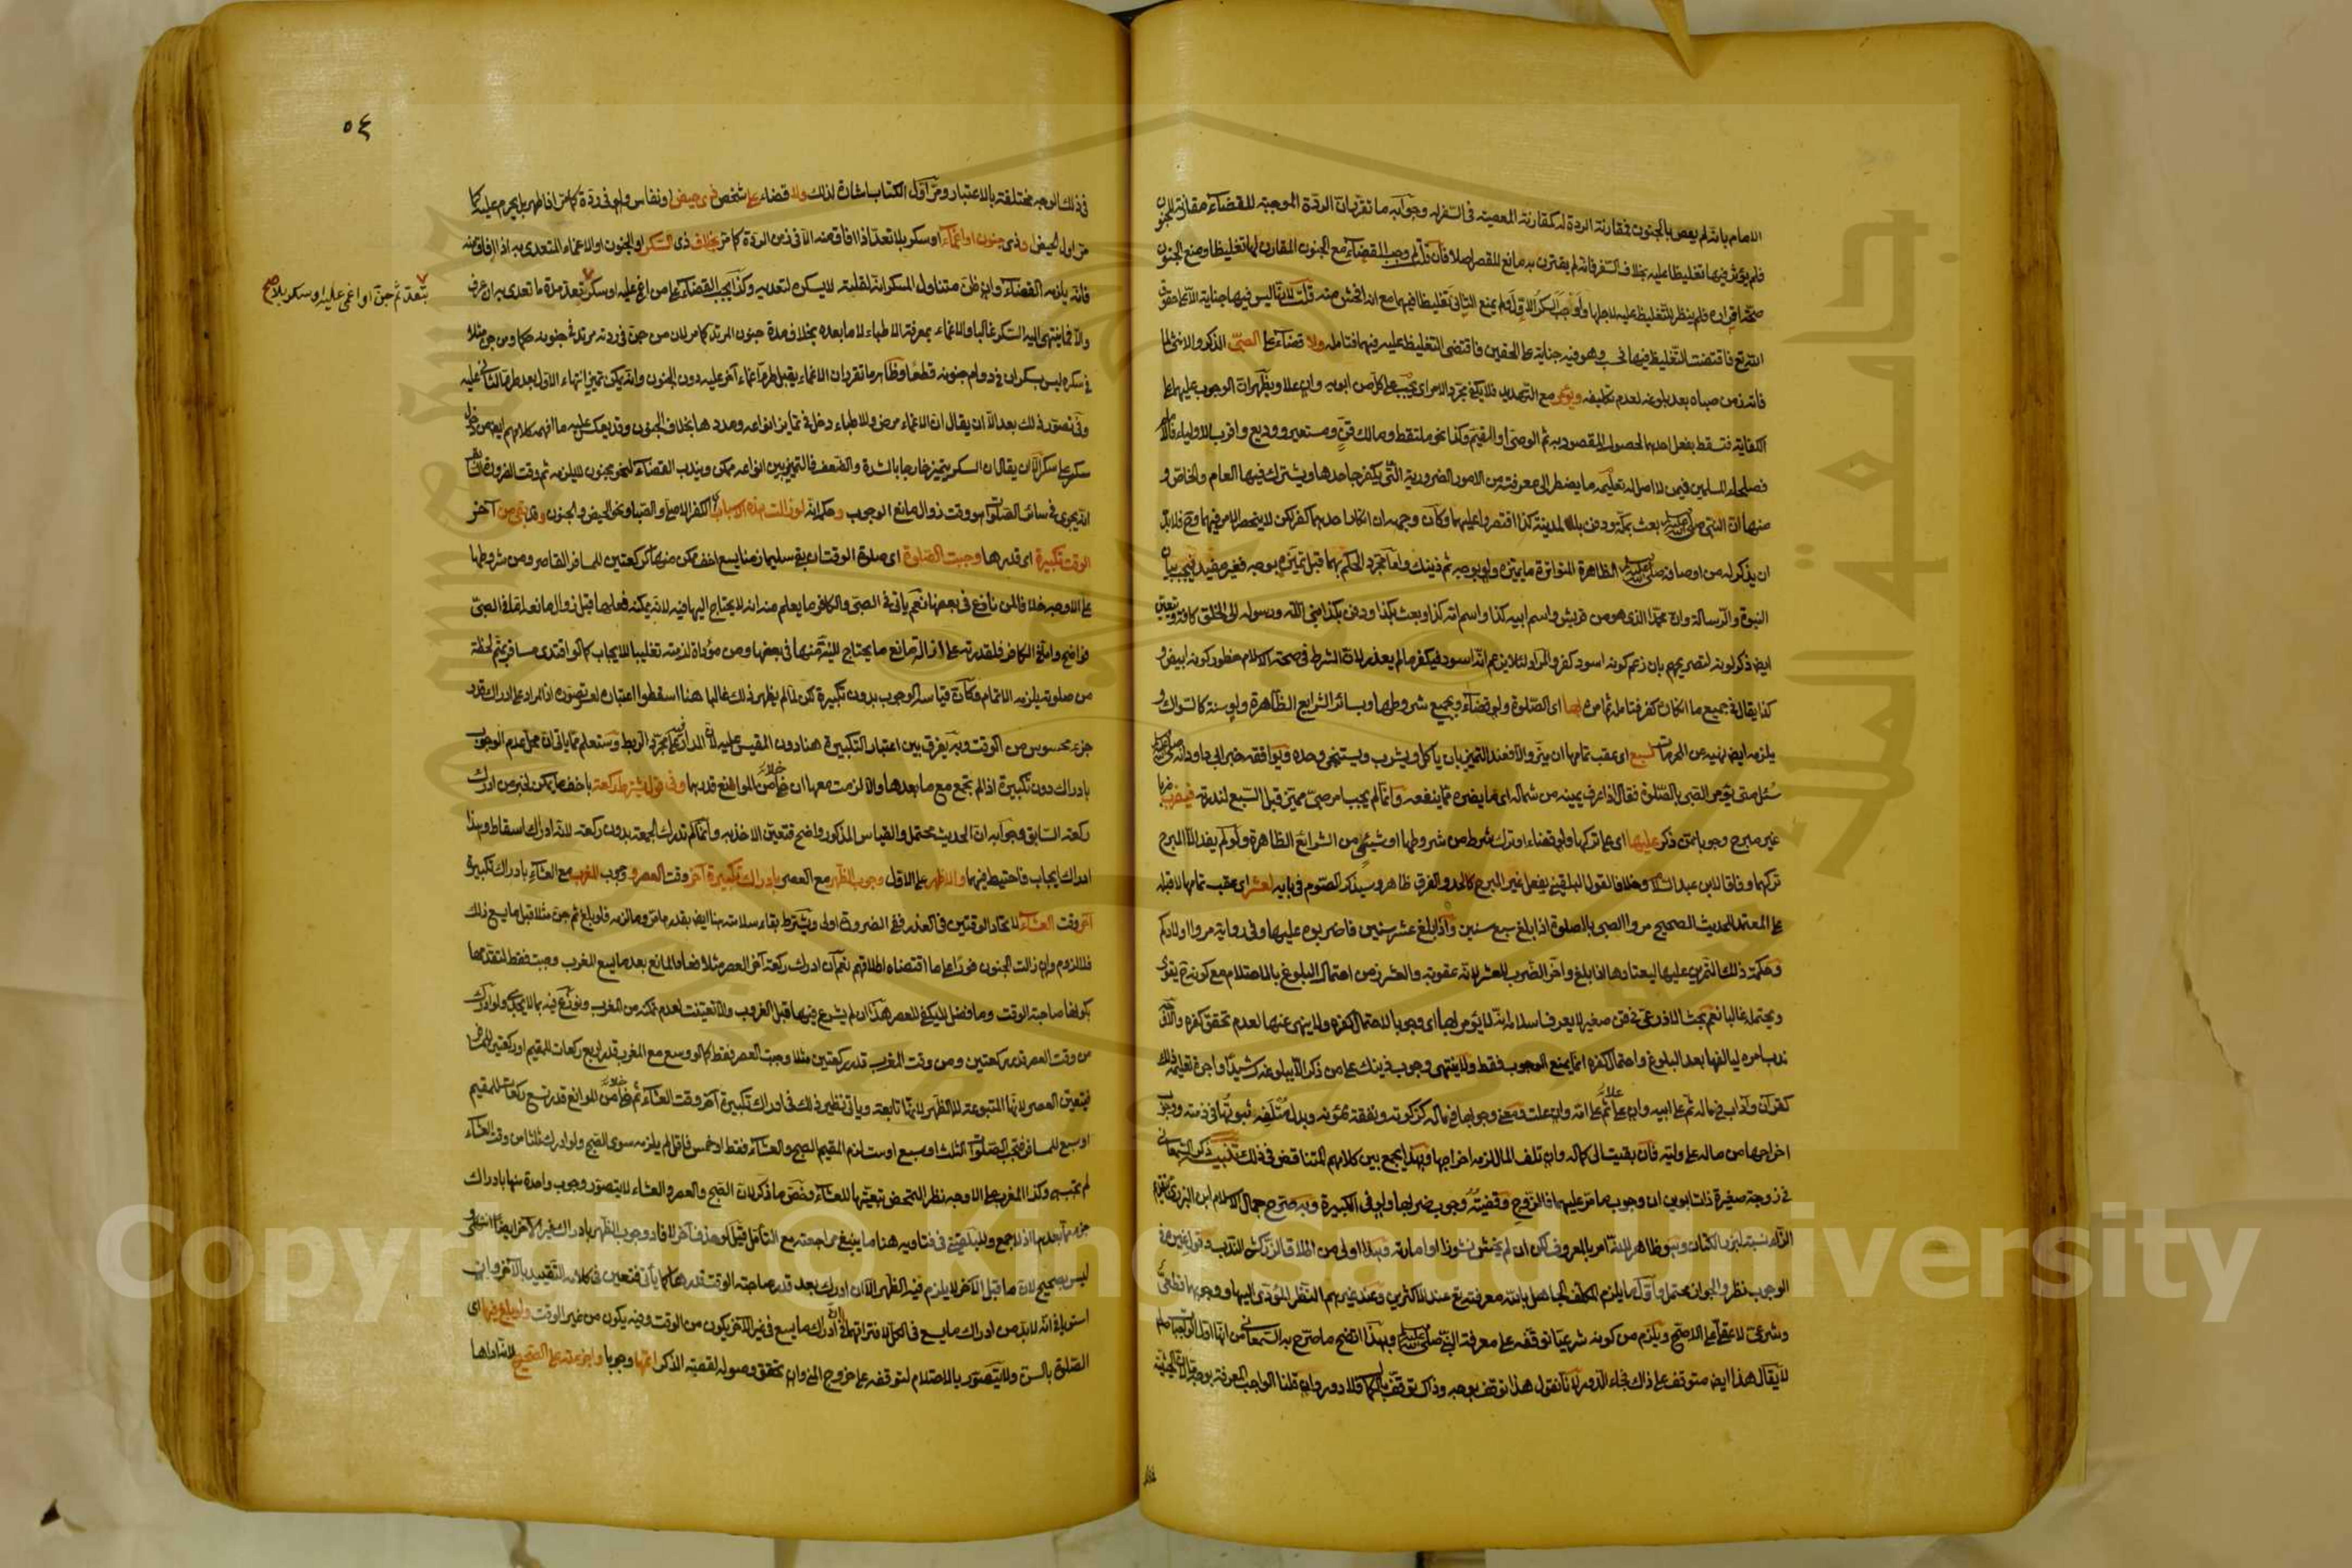 الامام بانه لم يعص بالجنون فمقارنة الردة له كمقارنة المعصية في السفر له وجوابه ما تقرر ان الردة الموجبة للقضاء مقارنة للجنون
فلم يؤثر فيها تغليظا عليه بخلاف السفر فانه لم يقترن به مانع للقصر اصلا فان قلت لم وجب القضاء مع الجنون المقارن لها تغليظا ومنع الجنون
صحة اقراره فلم ينظر للتغليظ عليه لاجلها
التبرع فاقتضت التغليظ فيها فحسب وهو فيه جناية على الحقين فاقتضى التغليظ عليه فيهما فتامله ولا قضاء على الصبي الذكر والانثى لما
فاته زمن صباه بعد بلوغه لعدم تكليفه ويؤمر مع التهديد فلا يكفي مجرد الامر اي يجب على كل من ابويه وان علا ويظهر ان الوجوب عليهما على
الكفاية فتسقط بفعل احدهما لحصول المقصود به ثم الوصي او القيم وكذا نحو ملتقط ومالك قن ومستعير ووديع واقرب الاولياء فالامام
فصلحاء المسلمين فيمن لا اصل له تعليمه ما يضطر الى معرفته من الامور الضرورية التي يكفر جاحدها ويشترك فيها العام والخاص و
منها ان النبي صلى الله عليه وسلم بعث بمكة ودفن بالمدينة كذا اقتصروا عليهما وكأن وجهه ان انكار احدهما كفر لكن لا ينحصر الامر فيهما وح فلا بد
ان يذكر له من اوصافه صلى الله عليه وسلم الظاهرة المتواترة ما يميزه ولو بوجه ثم ذينك واما مجرد الحكم بهما قبل تميزه بوجه فغير مفيد فيجب بيان
النبوة والرسالة وان محمدا الذي هو من قريش واسم ابيه كذا واسم امه كذا وبعث بكذا ودفن بكذا نبي الله ورسوله الى الخلق كافة ويتعين
ايض ذكر لونه لتصريحهم بان زعم كونه اسود كفر والمراد لئلا يزعم انه اسود فيكفر ما لم يعذر لا ان الشرط في صحة الاسلام خطور كونه ابيض و
كذا يقال في جميع ما انكاره كفر فتامله ثم امره بها اي الصلوة ولو قضاء وبجميع شروطها وبسائر الشرايع الظاهرة ولو سنة كالسواك و
يلزمه ايض نهيه عن المحرمات لسبع اي عقب تمامها ان ميز والا فعند التمييز بان ياكل ويشرب ويستنجي وحده ويوافقه خبر ابي داود انه صلى الله عليه وسلم
سئل متى يؤمر الصبي بالصلوة فقال اذا عرف يمينه من شماله اي ما يضره مما ينفعه وانما لم يجب امر صبي مميز قبل السبع لندرته فيضرب ضربا
غير مبرح وجوبا ممن ذكر عليها اي على تركها ولو قضاء او ترك شرط من شروطها او شيئ من الشرائع الظاهرة ولو لم يفد الا المبرح
تركهما وفاقا لابن عبد السلام وخلافا لقول البلقيني يفعل غير المبرح كالحد والفرق ظاهر وسيذكر الصوم في بابه لعشر اي عقب تمامها لا قبله
على المعتمد للحديث الصحيح مروا الصبي بالصلوة اذا بلغ سبع سنين واذا بلغ عشر سنين فاضربوه عليها وفي رواية مروا اولادكم
وحكمة ذلك التمرين عليها ليعتادها اذا بلغ واخر الضرب للعشر لانه عقوبة والعشر زمن احتمال البلوغ بالاحتلام مع كونه ح يقوى
ويحتمله غالبا نعم بحث الاذرعي في قن صغير لا يعرف اسلامه انه لا يؤمر بها اي وجوبا لاحتمال كفره ولا ينهى عنها لعدم تحقق كفره والاوجه
ندب امره ليالفها بعد البلوغ واحتمال كفره انما يمنع الوجوب فقط ولا ينتهي وجوب ذينك على من ذكر الا ببلوغه رشيدا واجرة تعليمه ذلك
كقرآن وآداب في ماله ثم على ابيه وان علا ثم على امه وان علت ومعنى وجوبها في ماله كزكوته ونفقة ممونه وبدل متلفه ثبوتها في ذمته ووجوب
اخراجها من ماله على وليه فان بقيت الى كماله وان تلف المال لزمه اخراجها وبهذا يجمع بين كلامهم المتناقض في ذلك تنبيه ذكر السمعاني
في زوجة صغيرة ذات ابوين ان وجوب ما مر عليهما فالزوج وقضيته وجوب ضربها ولو في الكبيرة وبه صرح جمال الاسلام ابن البزري
الوجوب نظر والجواز محتمل واول ما يلزم المكلف الجاهل بالله معرفته تع عند الاكثرين وعند غيرهم النظر المؤدي اليها ووجوبها قطعي
وشرعي لا عقلي على الاصح ويلزم من كونه شرعيا توقفه على معرفة النبي صلى الله عليه وسلم وبهذا اتضح ما صرح به السمعاني من انها اول الواجبات
لا يقال هذا ايض متوقف على ذاك فجاء الدور لانا نقول هذا توقف بوجه وذاك توقف بالكمال فلا دور
٥٤
في ذلك الوجه مختلفة بالاعتبار ومر اول الكتاب اشارة لذلك ولا قضاء على شخص ذي حيض او نفاس ولو في ردة كما مر اذا طهر بل يحرم عليه كما
مر اول الحيض او ذي جنون او اغماء او سكر بلا تعد اذا افاق منه الا في زمن الردة كما مر بخلاف ذي السكر او الجنون او الاغماء المتعدى به اذا افاق منه
فانه يلزمه القضاء وان ظن متناول المسكر انه لقلته لا يسكره لتعديه وكذا يجب القضاء على من اغمي عليه او سكر بتعد مدة ما تعدى به ان عرف
بتعد ثم جن او اغمي عليه او سكر بلا صح
والا فما ينتهي اليه السكر غالبا والاغماء بمعرفة الاطباء لا ما بعده بخلاف مدة جنون المرتد كما مر لان من جن في ردته مرتد في جنونه حكما ومن جن مثلا
في سكره ليس بسكران في دوام جنونه قطعا وظاهر ما تقرر ان الاغماء يقبل طرو اغماء آخر عليه دون الجنون وانه يمكن تميز انتهاء الاول بعد طرو الثاني عليه
وفي تصور ذلك بعد الا ان يقال ان الاغماء مرض وللاطباء دخل في تمايز انواعه ومددها بخلاف الجنون
سكر على سكر الا ان يقال ان السكر يتميز خارجا بالشدة والضعف فالتمييز بين انواعه ممكن ويندب القضاء لنحو مجنون لا يلزمه ثم وقت الضرورة
انه يجري في سائر الصلوات وهو وقت زوال مانع الوجوب وحكمه انه لو زالت هذه الاسباب الكفر الاصلي والصبا ونحو الحيض والجنون وقد بقي من آخر
الوقت تكبيرة اي قدرها وجبت الصلوة اي صلوة الوقت ان بقي سليما زمنا يسع اخف ممكن منها كركعتين للمسافر القاصر ومن شروطها
على الاوجه خلافا لمن نازع في بعضها نعم ياتي في الصبي والكافر ما يعلم منه انه لا يحتاج اليها فيه لانه يمكنه فعلها قبل زوال مانعه اما في الصبي
فواضح واما في الكافر فلقدرته على ازالة مانعه ما يحتاج لنية منها في بعضها ومن مؤداة لزمته تغليبا للايجاب كما لو اقتدى مسافر بمتم لحظة
من صلوته يلزمه الاتمام وكان قياسه الوجوب بدون تكبيرة لكن لما لم يظهر ذلك غالبا هنا اسقطوا اعتباره لعسر تصوره اذ المدار على ادراك قدر
جزء محسوس من الوقت وبه يفرق بين اعتبار التكبيرة هنا دون المقيس عليه لان المدار فيه على مجرد الربط وستعلم مما ياتي ان محل عدم الوجوب
بادراك دون تكبيرة اذا لم يجتمع مع ما بعدها والا لزمت معها ان خلا من الموانع قدرهما وفي قول يشترط ركعة باخف ما يمكن لخبر من ادرك
ركعة السابق وجوابه ان الحديث محتمل والقياس المذكور واضح فتعين الاخذ به وانما لم تدرك الجمعة بدون ركعة لانه ادراك اسقاط وهذا
ادراك ايجاب فاحتيط فيهما والاظهر على الاول وجوب الظهر مع العصر بادراك تكبيرة آخر وقت العصر ووجوب المغرب مع العشاء بادراك تكبيرة
آخر وقت العشاء لاتحاد الوقتين في العذر ففي الضرورة اولى ويشترط بقاء سلامته هنا ايض بقدر ما مر وما لزمه فلو بلغ ثم جن مثلا قبل ما يسع ذلك
فلا لزوم وان زالت الجنون فورا على ما اقتضاه اطلاقهم نعم ان ادرك ركعة آخر العصر مثلا فعاد المانع بعد ما يسع المغرب وجبت فقط لتقدمها
بكونها صاحبة الوقت وما فضل لا يكفي للعصر هذا ان لم يشرع فيها قبل الغروب والا تعينت لعدم تمكنه من المغرب ونوزع فيه بما لا يجدي ولو ادرك
من وقت العصر قدر ركعتين ومن وقت المغرب قدر ركعتين مثلا وجبت العصر فقط كما لو وسع مع المغرب قدر اربع ركعات للمقيم او ركعتين للمسافر
فيتعين العصر لانها المتبوعة لا الظهر لانها تابعة وياتي نظير ذلك في ادراك تكبيرة آخر وقت العشاء ثم خلا من الموانع قدر تسع ركعات للمقيم
او سبع للمسافر فتجب الصلوات الثلث او سبع او ست لزم المقيم الصبح والعشاء فقط او خمس فاقل لم يلزمه سوى الصبح ولو ادرك ثلثا من وقت العشاء
لم تجب هي وكذا المغرب على الاوجه نظرا لتمحض تبعيتها للعشاء وخص ما ذكر لان الصبح والعصر والعشاء لا يتصور وجوب واحدة منها بادراك
جزء مما بعدها اذ لا جمع وللبلقيني في فتاويه هنا ما ينبغي مراجعته مع التامل قيل لو حذف آخر لافاد وجوب الظهر بادراك غير الآخر ايضا انتهى و
ليس بصحيح لان ما قبل الآخر لا يلزم فيه الظهر الا ان ادرك بعد قدر صاحبة الوقت قدرها كما يأتي فتعين في كلامه التقييد بالآخر وان
استويا في انه لا بد من ادراك ما يسع في الكل لافتراقهما في ان ادراك ما يسع في غير الآخر يكون من الوقت وفيه يكون من غير الوقت ولو بلغ فيها اي
الصلوة بالسن ولا يتصور بالاحتلام لتوقفه على خروج المني وان تحقق وصوله لقصبة الذكر اتمها وجوبا واجزءته على الصحيح لانه اداها
Copyright © King Saud University